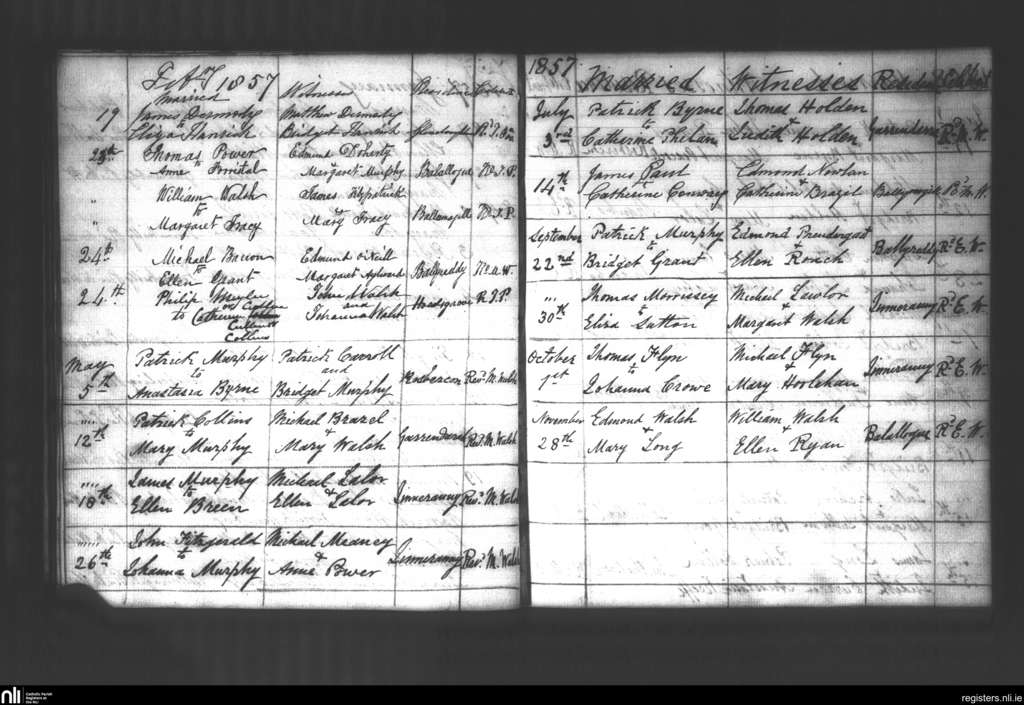 Feby 1857
Married Witness Residence
19 James Dermody Matthew Dermody
to
Eliza Bridget
23th Thomas Power Edmund Doherty
to
Anne Margaret Murphy Balallogue Rd J. P.
" William Walsh James Fitzpatrick
to &
Margaret Tracy Mary Tracy Rd J. P.
24th Michael Edmund O'Neill
to
Ellen Grant Margaret Aylward Ballyreddy
24th Philip John Walsh
and
to Johanna Walsh R J. P.
Cullen
Collins
May Patrick Murphy Patrick Carroll
to and
5th Anastasia Byrne Bridget Murphy Revd M. Walsh
.... Patrick Collins Michael Brazel
to &
12th Mary Murphy Mary Walsh Revd M. Walsh
.... James Murphy Michael Lalor
to &
18th Ellen Breen Ellen Lalor Jinnerawny Revd M. Walsh
..... John Fitzgerald Michael Meaney
to &
26th Johanna Murphy Anne Power Jinnerawny Revd M. Walsh
1857 Married Witnesses
July Patrick Byrne Thomas Holden
to &
3rd Catharine Phelan Judith Holden Rd M. W.
14th James Paul Edmond Nowlan
to &
Catherine Conway Catherine Brazil Rd M. W.
September Patrick Murphy Edmond Prendergast
to &
22nd Bridget Grant Ellen Roach Ballyreddy Rd E. W.
... Thomas Morrissey Michael Lawlor
to &
30th Eliza Sutton Margaret Walsh Jinnerawny Rd E. W.
October Thomas Flyn Michael Flyn
to &
1st Johanna Crowe Mary Hoolehan Jinnerawny Rd E. W.
November Edmond Walsh William Walsh
to &
28th Mary Long Ellen Ryan Balallogue Rd E. W.
nli
Catholic Parish
Registers at
the NLI
registers.nli.ie